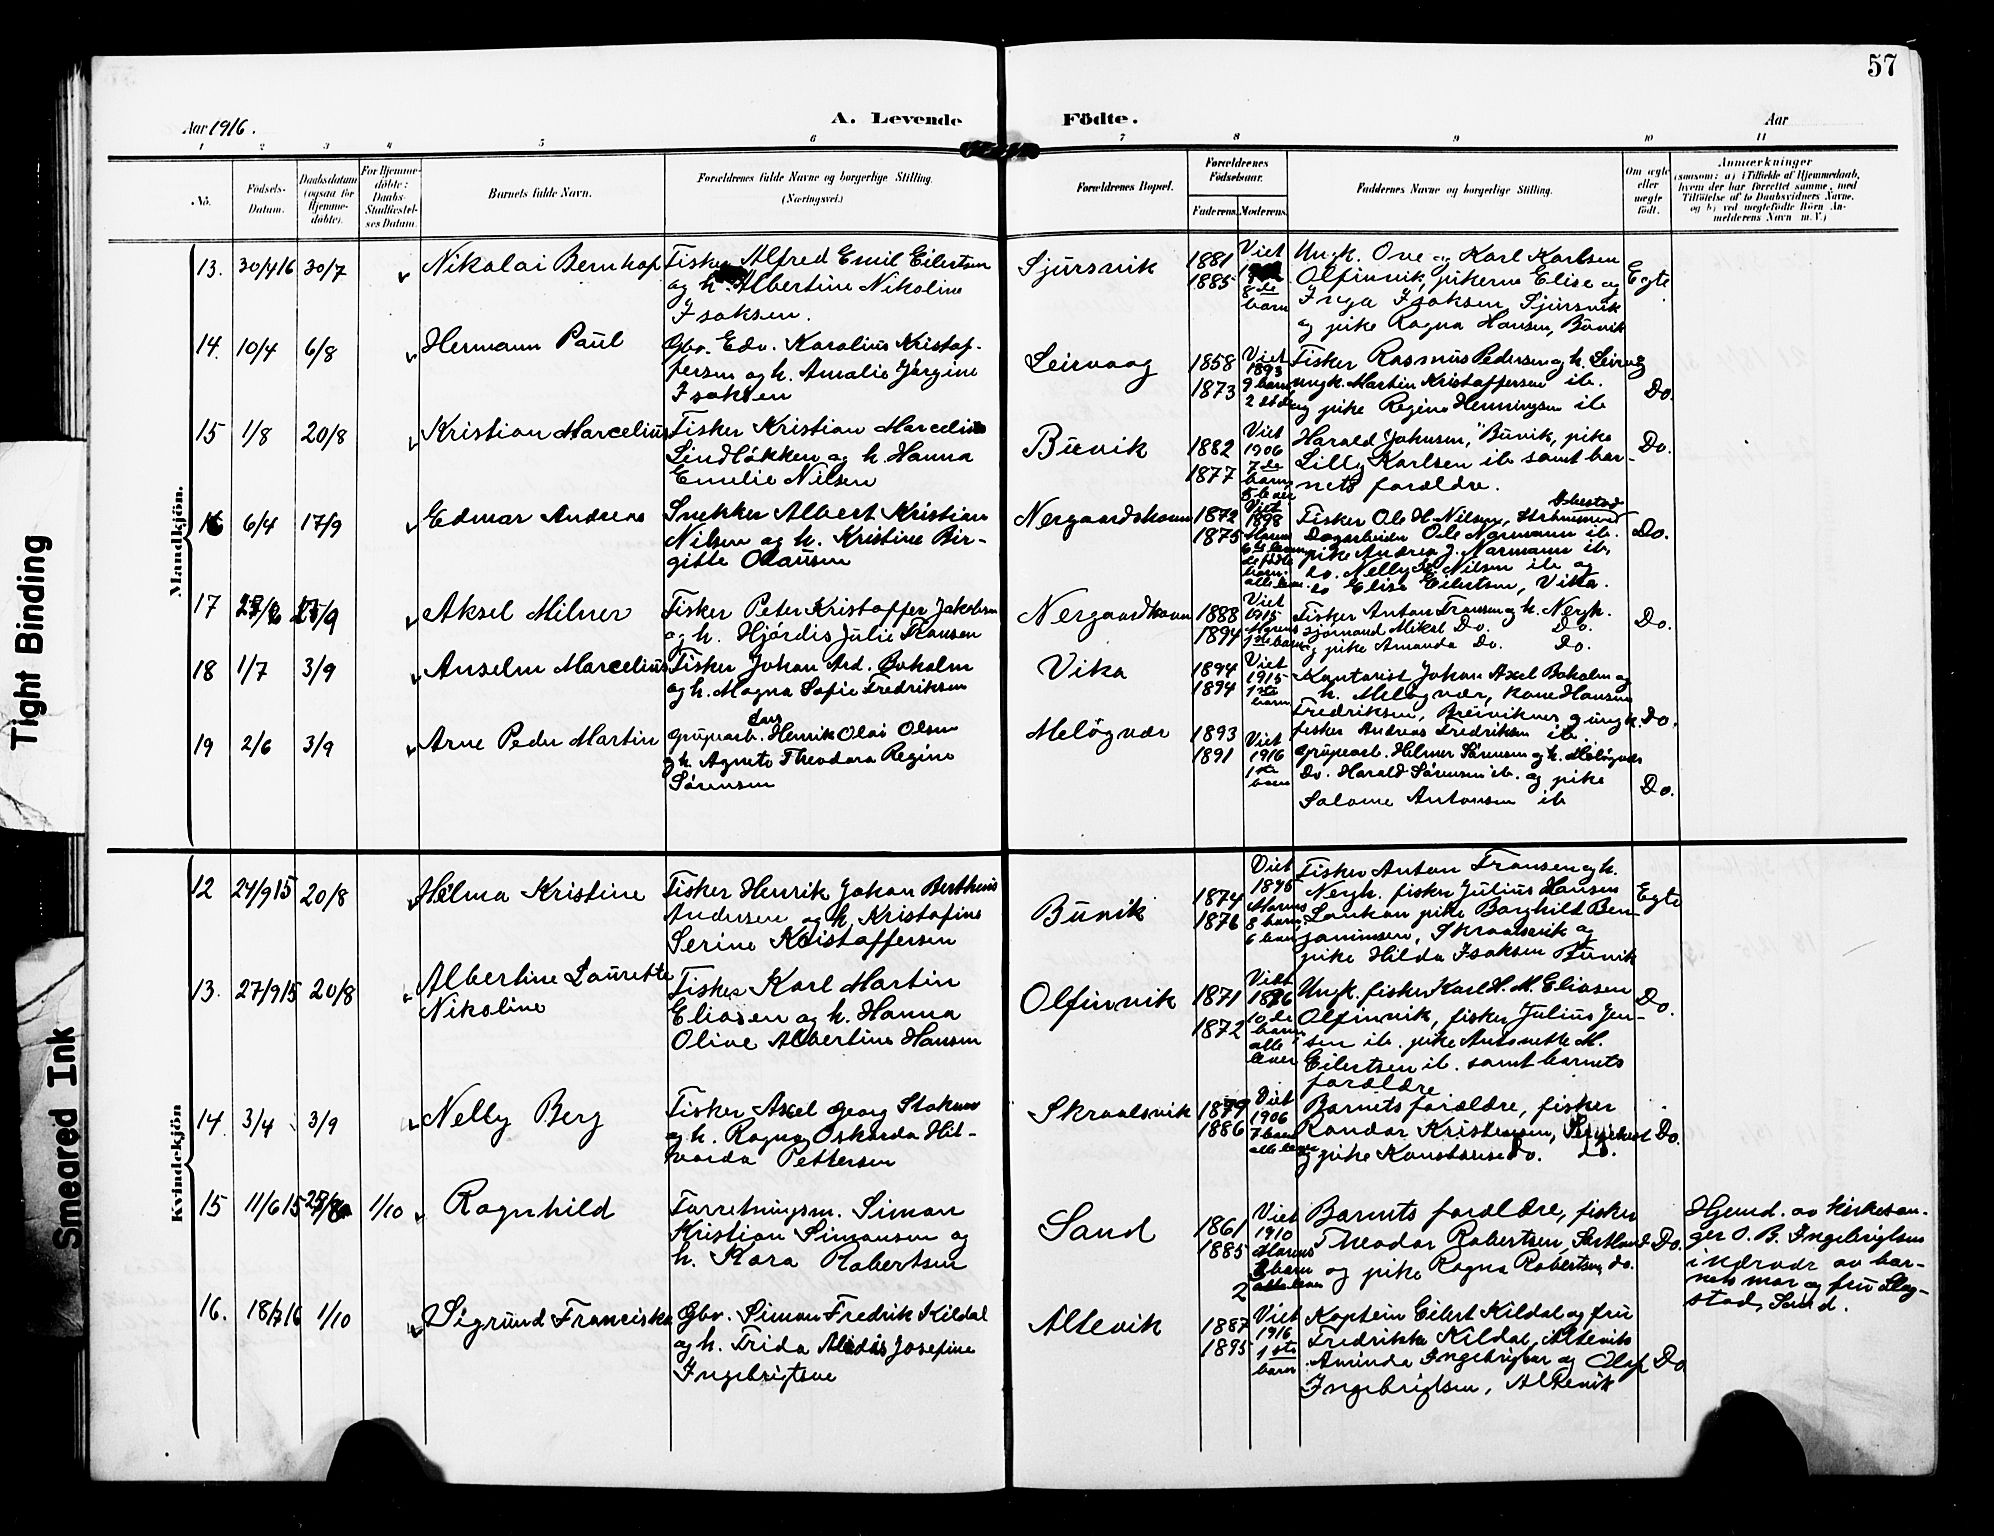 57
Aar 1916.
A. Levende
Födte.
Aar
1 2 3 4 5 6 7 8 9 10 11
No.
Födsels-
Datum.
Daabsdatum
(ogsaa for
Hjemme-
döbte).
For Hjemme-
döbte:
Daabs-
Stadfæstel-
ses Datum.
Barnets fulde Navn.
Forældrenes fulde Navne og borgerlige Stilling.
(Næringsvei.)
Forældrenes Bopæl.
Forældrenes
Födselsaar.
Faderens. Moderens.
Faddernes Navne og borgerlige Stilling.
Om ægte
eller
uægte
födt.
Anmærkninger
(saasom: a) i Tilfælde af Hjemmedaab,
hvem der har forrettet samme, med
Tilföielse af to Daabsvidners Navne,
og b) ved uægtefödte Börn An-
melderens Navn m. V.)
Mandkjön.
13. 30/4 16 30/7 Nikolai Bernhof
Fisker Alfred Emil Eilertsen
og h. Albertine Nikoline
Isaksen.
Sjursvik
1881
1885
Viet
8de
barn
Ungk. Ove og Karl Karlsen
Olfinvik, pikerne Elise og
Inga Isaksen, Sjursvik
og pike Ragna Hansen, Buvik
Egte
14. 10/4 6/8 Hermann Paul
Gbr. Edv. Karolius Kristof-
fersen og h. Amalie Jørgine
Isaksen
Leirvaag
1858
1873
Viet
1893
9 barn
Fisker Rasmus Pedersen og h. Leirvg
ungk. Martin Kristoffersen ib.
og pike Regine Henningsen ib
Do.
15 1/8 20/8 Kristian Marcelius
Fisker Kristian Marcelius
Lindløkken og h. Hanna
Emelie Nilsen
Buvik
1882
1877
Viet
1906
7de
barn
5 lever
Harald Johnsen, Buvik, pike
Lilly Karlsen ib samt bar-
nets forældre.
Do.
16 6/4 17/9 Edmar Andreas
Snekker Albert Kristian
Nilsen og h. Kristine Bir-
gitte Olausen
Nergaardshavn
1872
1875
Viet
1898
Fisker Ole H. Nilsen,
Dagarbeider Ole Normann ib.
pike Andrea J. Normann ib,
do. Nelly Nilsen ib og
do Elise Eilertsen, Vika.
Do.
17 Aksel Milner
Fisker Peter Kristoffer Jakobsen
og h. Hjørdis Julie Fransen
Nergaardhavn
1888
1894
Viet
1915
1ste barn
Fisker Anton Fransen og h. Nergh.
sjømand Mikal Do. Do.
og pike Amanda Do. Do.
Do.
18 1/7 3/9 Anselm Marcelius
Fisker Johan Ard. Boholm
og h. Magna Sofie Fredriksen
Vika
1894
1894
Viet
1915
1ste
barn
Kontorist Johan Axel Boholm og
h. Meløgvær, kone Hansine
Fredriksen, Breiviknes og ungk.
fisker Andreas Fredriksen ib.
Do.
19 2/6 3/9 Arne Peder Martin
Grupearb. Henrik Olai Olsen
og h. Agnete Theodora Regine
Sørensen
Meløgvær
1893
1891
Viet
1916
1ste
barn
Grupearb. Helmer Sørensen og h. Meløgvær
Do. Harald Sørensen ib. og pike
Salome Antonsen ib
Do.
Kvindekjön
12 24/9 15 20/8 Helma Kristine
Fisker Henrik Johan Bertheus
Andersen og h. Kristofine
Serine Kristoffersen
Buvik
1874
1876
Viet
1895
8 barn,
6 lever
Fisker Anton Fransen og h.
Nergh. fisker Julius Hansen
Lankan pike Borghild Ben-
jaminsen, Skraalsvik og
pike Hilda Isaksen Buvik
Egte
13. 27/9 15 20/8 Albertine Laurette
Nikoline
Fisker Karl Martin
Eliasen og h. Hanna
Olive Albertine Hansen
Olfinvik
1871
1872
Viet
1896
10de
barn
alle
lever
Ungk. fisker Karl H. M. Eliasen
Olfinvik, fisker Julius Jen-
sen ib. pike Antonette M.
Eilertsen ib. samt barnets
forældre
Do.
14. 3/4 3/9 Nelly Berg
Fisker Axel Georg Stoknes
og h. Ragna Oskarda Hil-
varda Pettersen
Skraalsvik
1879
1886
Viet
1906
7 barn
alle lever
Barnets forældre, fisker
Randor Kristensen,
og pike Konstanse do. do.
Do.
15 11/6 15 1/10 Ragnhild
Forretningsm. Simon
Kristian Simonsen og
h. Kara Robertsen
Sand
1861
1885
Viet
1910
2
Barnets forældre, fisker
Theodor Robertsen,
og pike Ragna Robertsen do.
Do.
Hjemd. av kirkesan-
ger O. B. Ingebrigtsen
i nærvær av bar-
nets mor og fru Slog-
stad, Sand.
16. 18/7 16 1/10 Sigrund Franciska
Gbr. Simon Fredrik Kildal
og h. Frida Alvdis Josefine
Ingebrigtsen
Altevik
1887
1895
Viet
1916
1ste
barn
Kaptein Eilert Kildal og fru
Fredrikke Kildal, Altevik
Aminda Ingebrigtsen og Oluf
Ingebrigtsen, Altevik
Do
Tight Binding
Smeared Ink